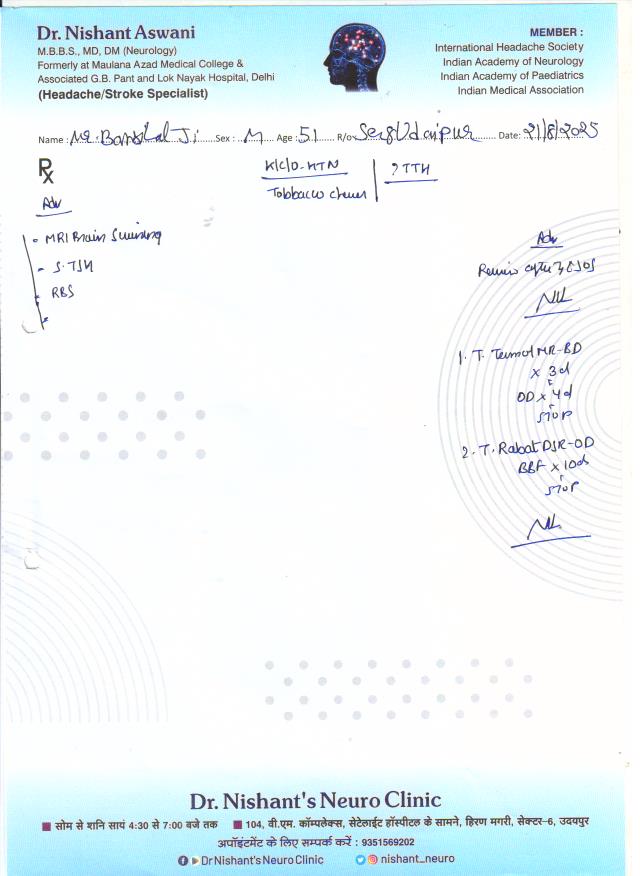 Dr. Nishant Aswani
M.B.B.S., MD, DM (Neurology)
Formerly at Maulana Azad Medical College &
Associated G.B. Pant and Lok Nayak Hospital, Delhi
(Headache/Stroke Specialist)
MEMBER :
International Headache Society
Indian Academy of Neurology
Indian Academy of Paediatrics
Indian Medical Association
Name : Mr. Ji Sex : M Age : 51 R/o Udaipur Date: 21/8/2025
Rx
K/C/O - HTN
Tobbacco chewer
? TTH
Adv
MRI Brain
S. TSH
RBS
Adv
Review after
1. T. MR-BD
x 3d
OD x 4d
STOP
2. T. Rabat DSR-OD
BBF x 10d
STOP
Dr. Nishant's Neuro Clinic
सोम से शनि सायं 4:30 से 7:00 बजे तक 104, वी.एम. कॉम्पलेक्स, सेटेलाईट हॉस्पीटल के सामने, हिरण मगरी, सेक्टर-6, उदयपुर
अपॉइंटमेंट के लिए सम्पर्क करें : 9351569202
Dr Nishant's Neuro Clinic nishant_neuro